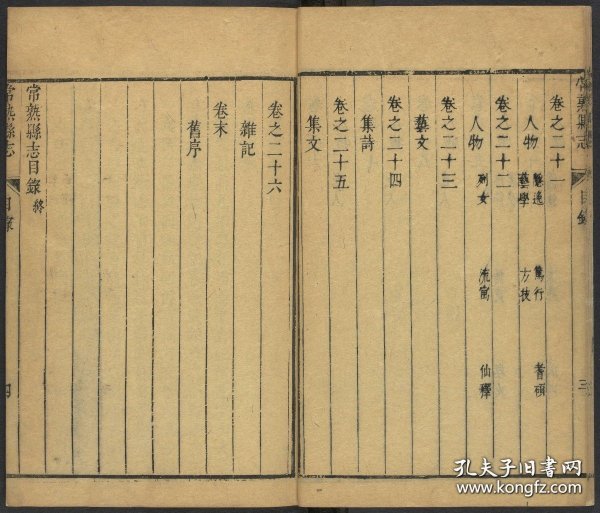 常熟縣志
目錄
三
卷之二十一
人物 隱逸 篤行 耆碩
藝學 方技
卷之二十二
人物 列女 流寓 仙釋
卷之二十三
藝文
卷之二十四
集詩
卷之二十五
集文
卷之二十六
雜記
卷末
舊序
常熟縣志目錄 終
常熟縣志
目錄
四
孔夫子旧书网
www.kongfz.com